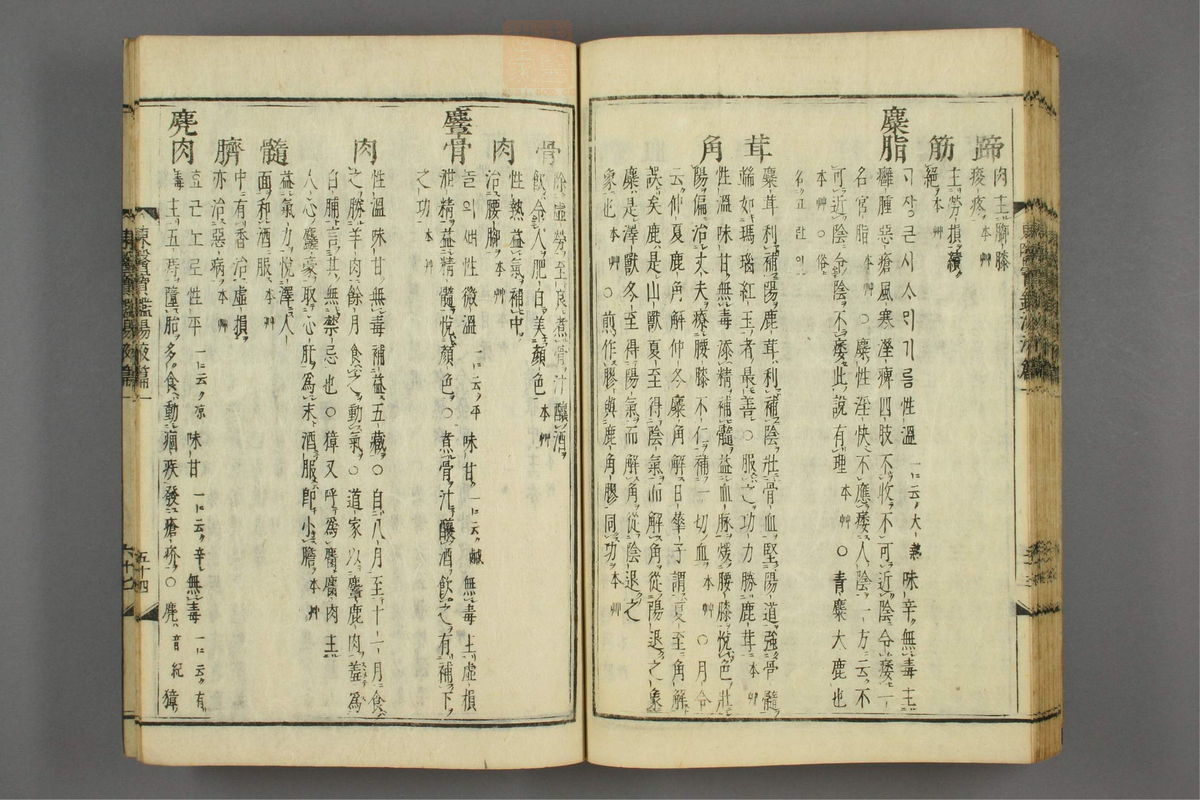 蹄 肉主脚膝
痠疼 本艸
筋 主勞損續
絕 本艸
麋脂 性溫 一云大熱 味辛無毒主
癰腫惡瘡風寒濕痺四肢不收不可近陰令痿一
名宮脂 本艸 ○麋性淫快不應痿人陰一方云不
可近陰令陰不痿此說有理 本艸 ○靑麋大鹿也
本艸 ○俗
名고라니
茸 麋茸利補陽鹿茸利補陰壯骨血堅陽道強骨髓
端如瑪瑙紅玉者最善○服之功力勝鹿茸 本艸
角 性溫味甘無毒添精補髓益血脉煖腰膝悅色壯
陽偏治丈夫療腰膝不仁補一切血 本艸 ○月令
云仲夏鹿角解仲冬麋角解日華子謂夏至角解
誤矣鹿是山獸夏至得陰氣而解角從陽退之象
麋是澤獸冬至得陽氣而解角從陰退之
象也 本艸 ○煎作膠與鹿角膠同功 本艸
骨 除虛勞至良煮骨汁釀酒
飮令人肥白美顏色 本艸
肉 性熱益氣補中
治腰脚 本艸
麞骨 性微溫 一云平 味甘 一云鹹 無毒主虛損
泄精益精髓悅顏色○煮骨汁釀酒飮之有補下
之功 本艸
肉 性溫味甘無毒補益五藏○自八月至十一月食
之勝羊肉餘月食之動氣○道家以麞鹿肉羞爲
白脯言其無禁忌也○獐又呼爲麕麕肉主
人心麤豪取心肝爲末酒服卽小膽 本艸
髓 益氣力悅澤人
面和酒服 本艸
臍 中有香治虛損
亦治惡病 本艸
麂肉 性平 一云凉 味甘 一云辛 無毒 一云有
毒 主五痔墮胎多食動痼疾發瘡疥○麂 音紀 獐
東醫寶鑑湯液篇一
五十四
六十七